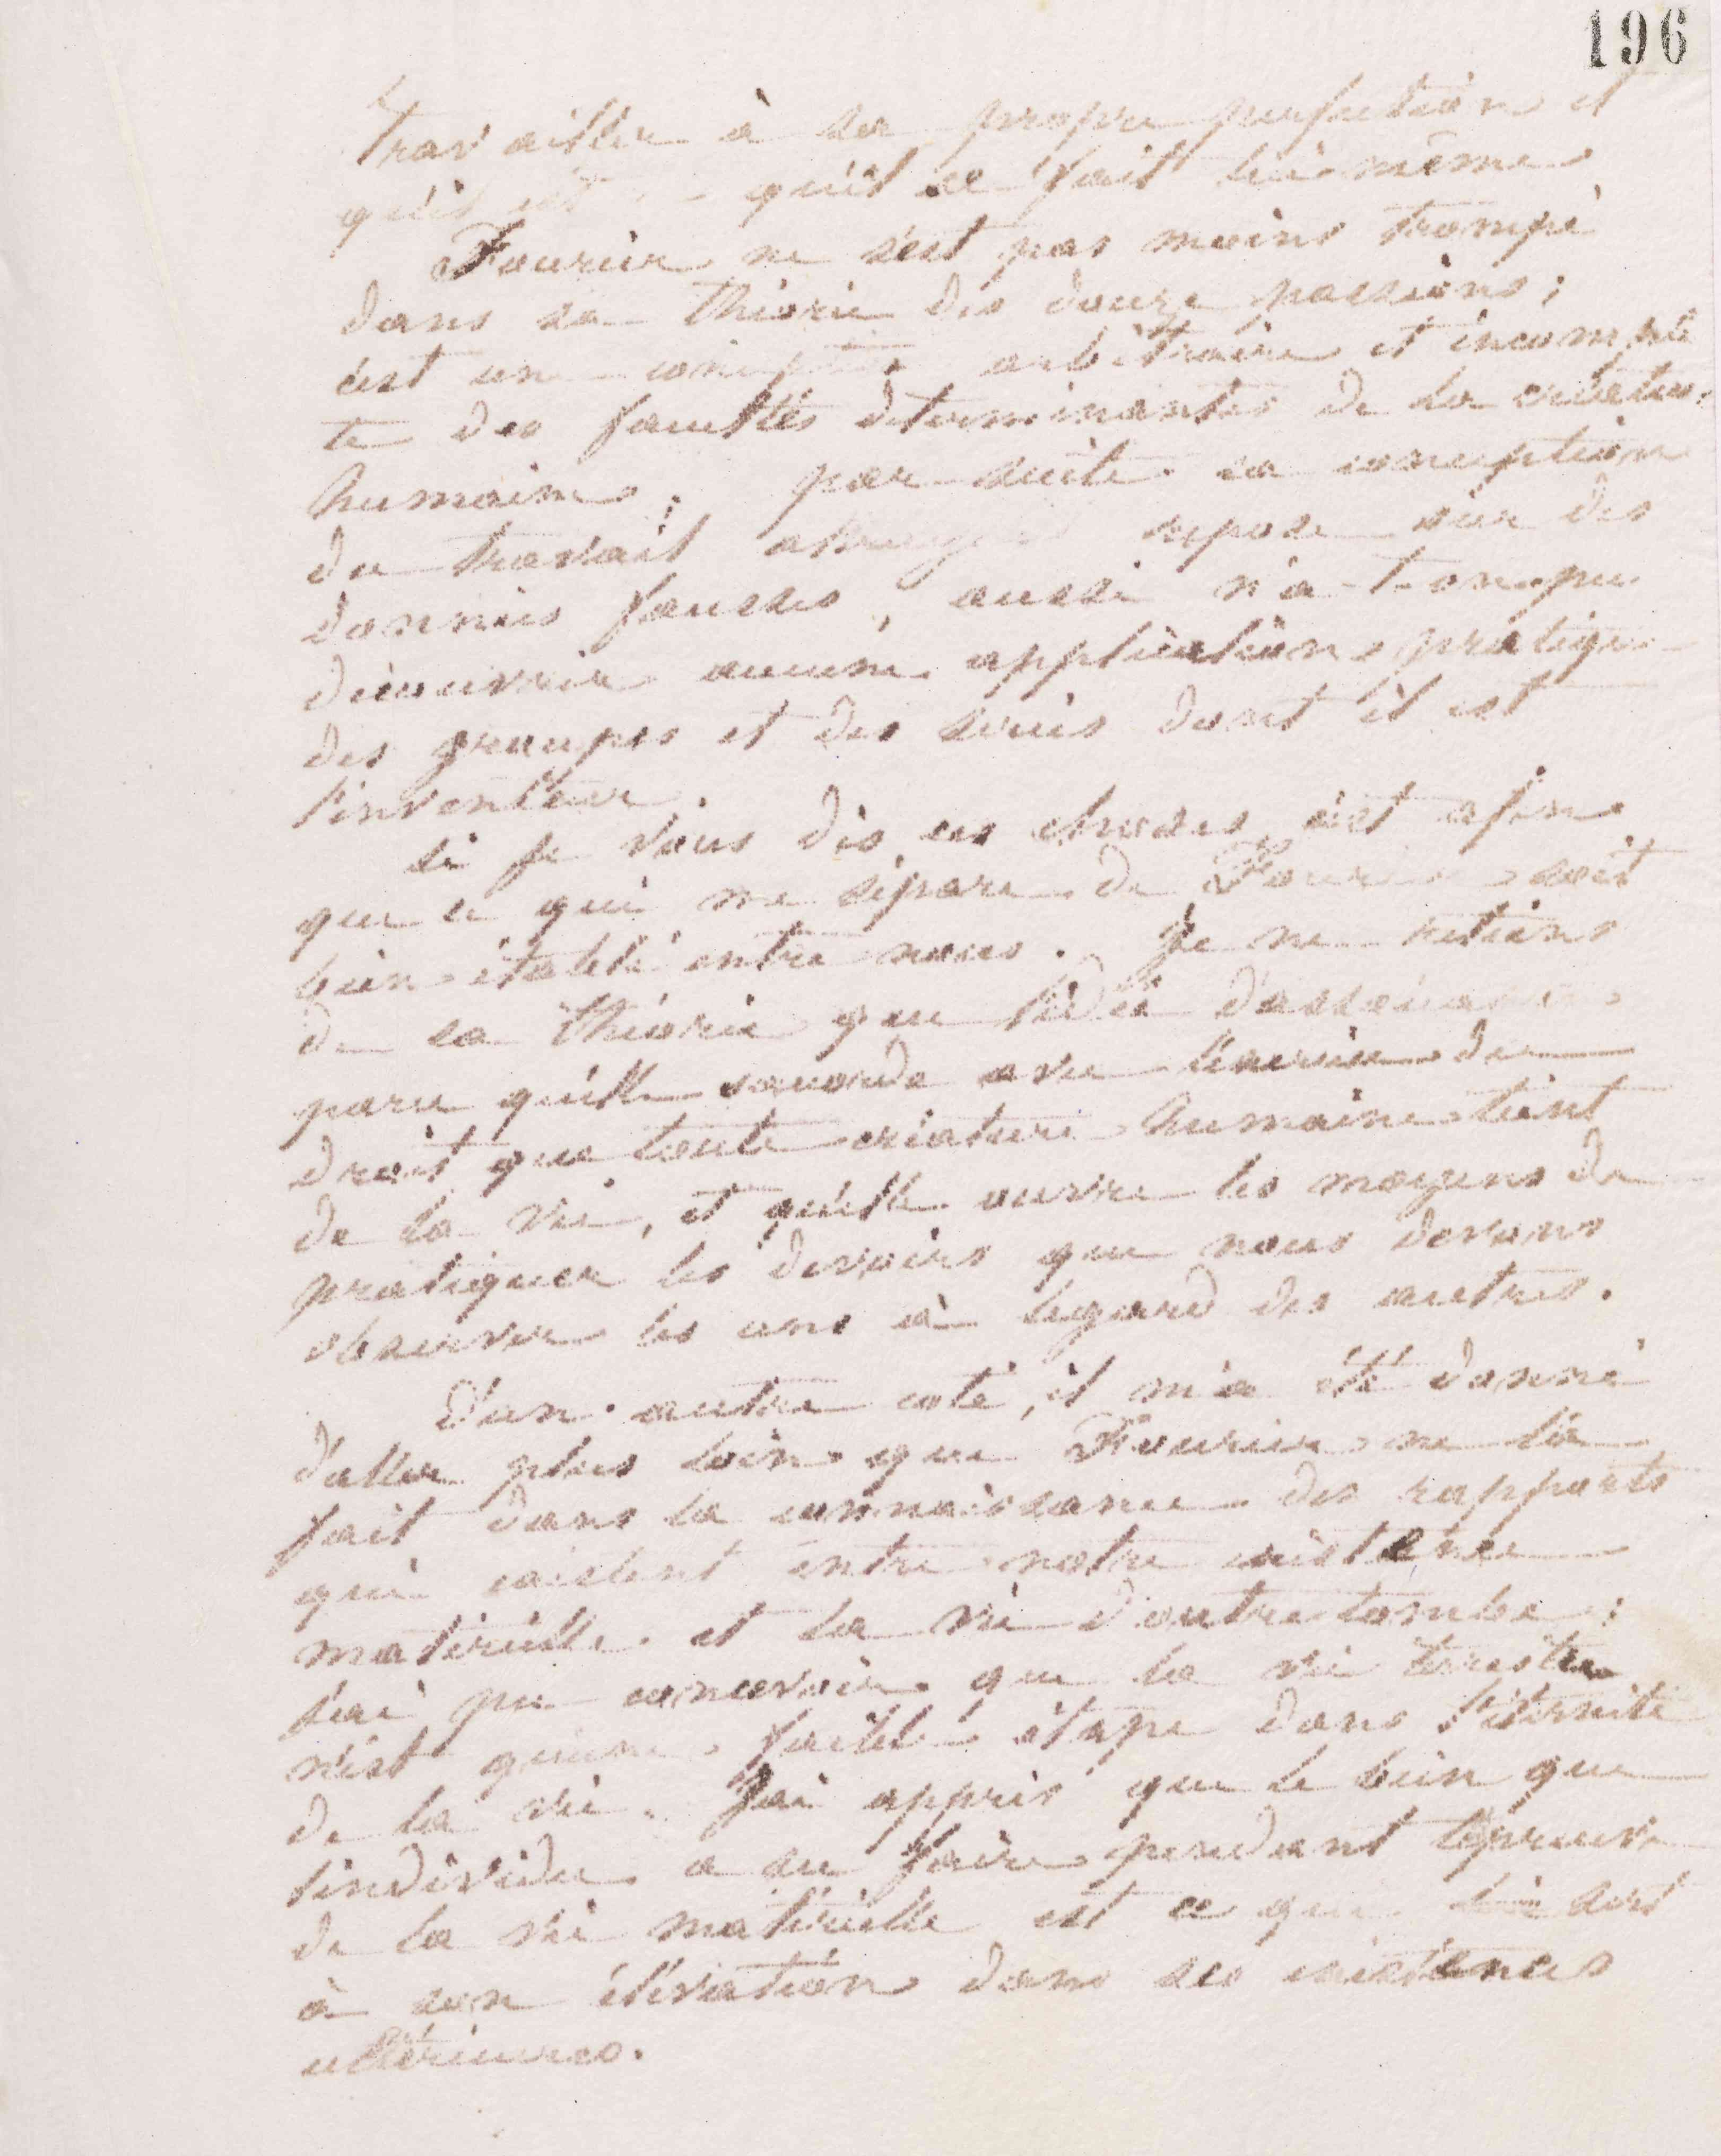 196
travailler à sa propre perfection et
qu'il est qu'il se fait lui-même
Fourier ne s'est pas moins trompé
dans sa théorie des douze passions;
c'est une conception arbitraire et incomplè
te des facultés déterminantes de la créature
humaine; par suite sa conception
du travail attrayant repose sur des
données fausses, aussi n'a-t-on pu
découvrir aucune application pratique
des groupes et des séries dont il est
l'inventeur.
si je vous dis ces choses c'est afin
que ce qui me sépare de Fourier soit
bien établi entre nous. Je ne retiens
de sa théorie que l'idée d'association
parce qu'elle concorde avec l'exercice du
droit que toute créature humaine tient
de la vie, et qu'elle ouvre les moyens de
pratiquer les devoirs que nous devons
observer les uns à l'égard des autres.
D'un autre coté, il m'a été donné
d'aller plus loin que Fourier ne l'a
fait dans la connaissance des rapports
qui existent entre notre existence
matérielle et la vie d'outre tombe;
j'ai pu concevoir que la vie terrestre
n'est qu'une faible étape dans l'éternité
de la vie. J'ai appris que le bien que
l'individu a su faire pendant l'épreuve
de la vie matérielle est ce qui lui sert
à son élévation dans ses existences
ultérieures.